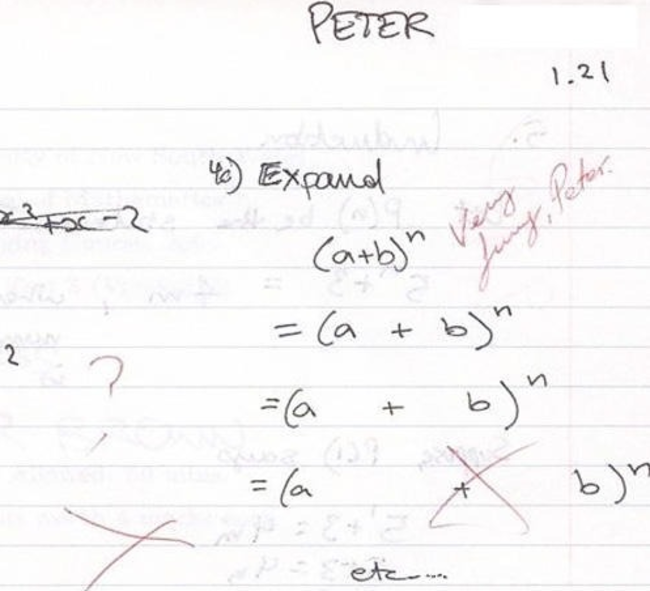 PETER
1.21
4c) Expand
x³+x-2
(a+b)ⁿ
Very
funny, Peter.
= (a + b)ⁿ
2
?
=(a + b)ⁿ
= (a + b)ⁿ
etc....